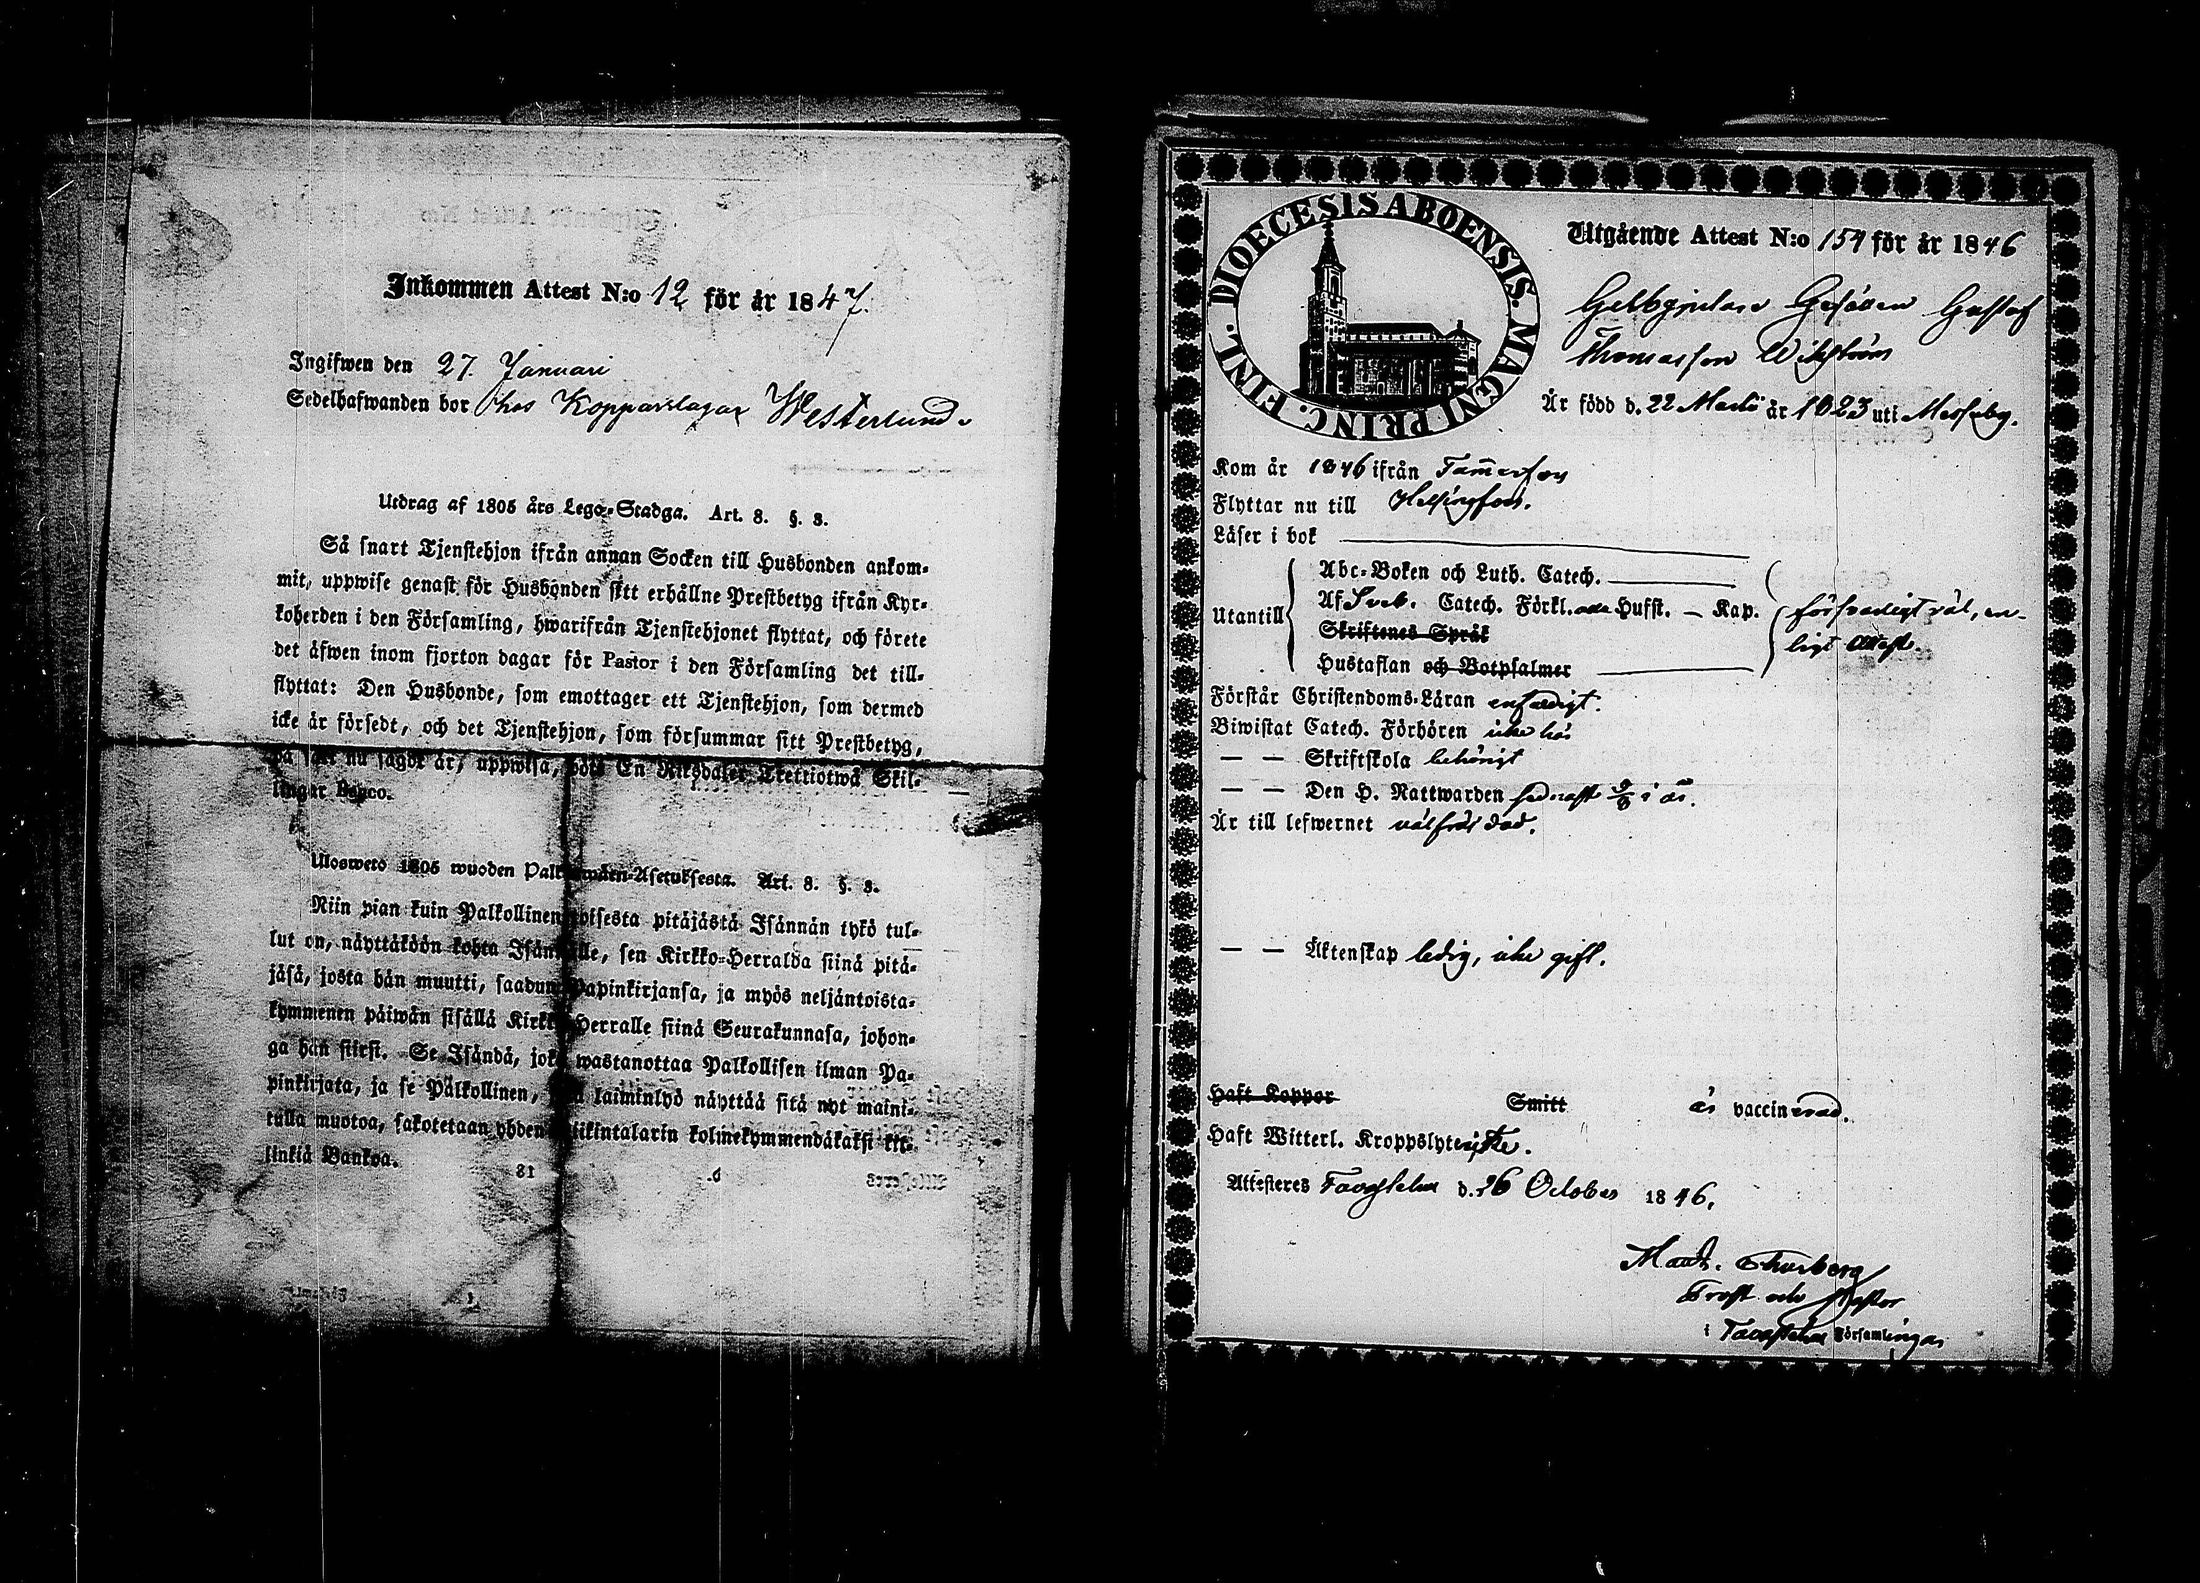 Inkommen Attest N:o 12 för år 1847.
Ingifwen den 27. Januari
Sedelhafwanden bor hos Kopparslagar Westerlund.
Utdrag af 1805 års Lego-Stadga. Art. 8. §. 3.
Så snart Tjenstehjon ifrån annan Socken till Husbonden ankom-
mit, uppwise genast för Husbonden sitt erhållne Prestbetyg ifrån Kyr-
koherden i den Församling, hwarifrån Tjenstehjonet flyttat, och förete
det äfwen inom fjorton dagar för Pastor i den Församling det till-
flyttat: Den Husbonde, som emottager ett Tjenstehjon, som dermed
icke är försedt, och det Tjenstehjon, som försummar sitt Prestbetyg,
på sätt nu sagdt är, uppwisa, böte En Riksdaler Trettiotwå Skil-
lingar Banco.
Uloswetö 1805 wuoden Palkkawäen-Asetuksesta. Art. 8. §. 3.
Niin pian kuin Palkollinen toisesta pitäjästä Isännän tykö tul-
lut on, näyttäköön kohta Isännälle, sen Kirkko-Herralda siinä pitä-
jäsä, josta hän muutti, saadun Papinkirjansa, ja myös neljäntoista-
kymmenen päiwän sisällä Kirkko-Herralle siinä Seurakunnasa, johon-
ga hän siirsi. Se Isändä, joka wastanottaa Palkollisen ilman Pa-
pinkirjata, ja se Palkollinen, joka laiminlyö näyttää sitä nyt maini-
tulla muotoa, sakotetaan yhden Riikintalarin kolmekymmendäkaksi kil-
linkiä Bankoa.
DIOECESIS ABOENSIS. MAGNI PRINC. FINL.
Utgående Attest N:o 154 för år 1846
Gelbgjutare Gesällen Gustaf
Thomasson Wikström
Är född d. 22 Martii år 1823 uti Messuby.
Kom år 1846 ifrån Tammerfors
Flyttar nu till Helsingfors.
Läser i bok
Utantill
Abc-Boken och Luth. Catech.
Af Sveb. Catech. Förkl. Hufst. — Kap.
Skriftenes Språk
Hustaflan och Botpsalmer
försvarligt väl, en-
ligt Attest.
Förstår Christendoms-Läran enfaldigt.
Biwistat Catech. Förhören icke här
— — Skriftskola behörigt
— — Den H. Nattwarden sednast 9/8 i år.
Är till lefwernet välfräjdad.
— — Äktenskap ledig, icke gift.
Haft Koppor Smitt är vaccinerad.
Haft Witterl. Kroppslyte icke.
Attesteres Tavastehus d. 26 October 1846.
Prost och Pastor
i Tavastehus Församlingar